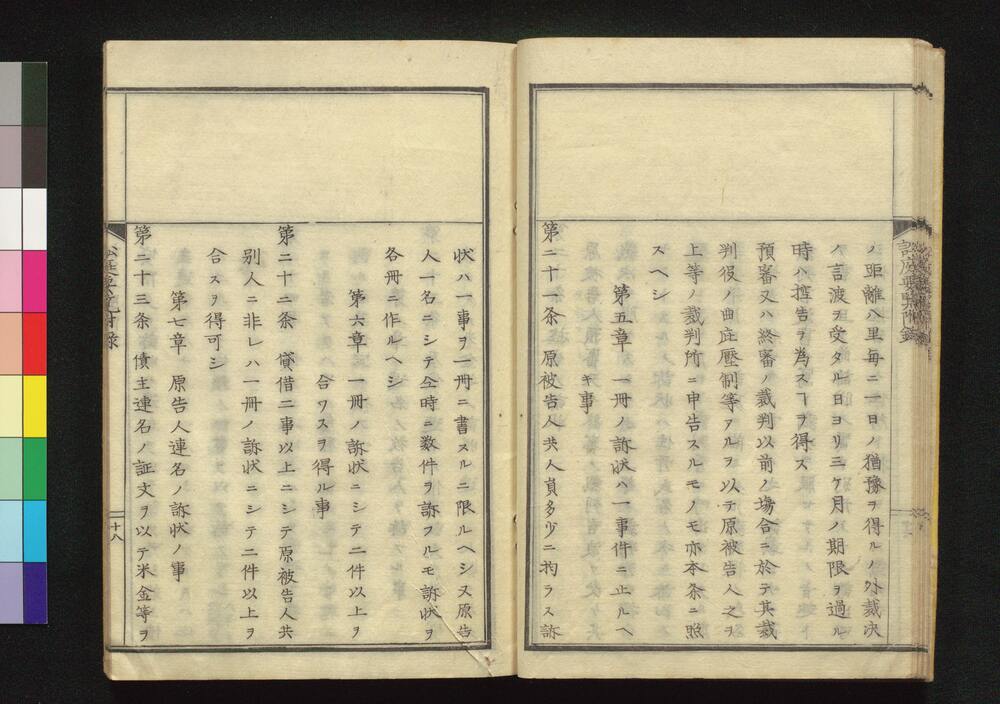 ノ距離八里毎ニ一日ノ猶豫ヲ得ルノ外裁决
ノ言渡ヲ受タル日ヨリ三ケ月ノ期限ヲ過ル
時ハ控告ヲ為スヿヲ得ス
預審又ハ終審ノ裁判以前ノ場合ニ於テ其裁
判役ノ曲庇壓制等アルヲ以テ原被告人之ヲ
上等ノ裁判所ニ申告スルモノモ亦本条ニ照
スヘシ
第五章 一冊ノ訴状ハ一事件ニ止ルヘ
キ事
第二十一条 原被告人共人員多少ニ拘ラス訴
状ハ一事ヲ一冊ニ書スルニ限ルヘシ又原告
人一名ニシテ仝時ニ数件ヲ訴フルモ訴状ヲ
各冊ニ作ルヘシ
第六章 一冊ノ訴状ニシテ二件以上ヲ
合ワスヲ得ル事
第二十二条 貸借二事以上ニシテ原被告人共
別人ニ非レハ一冊ノ訴状ニシテ二件以上ヲ
合スヲ得可シ
第七章 原告人連名ノ訴状ノ事
第二十三条 債主連名ノ証文ヲ以テ米金等ヲ
十八